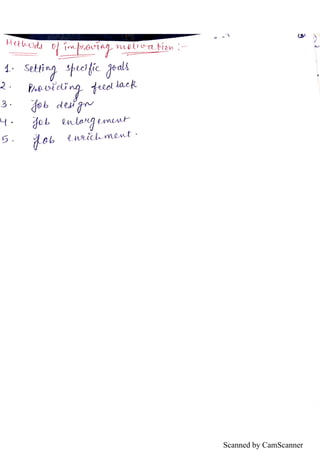 Methods of improving motivation :-
1. Setting specific goals
2. Providing feedback
3. Job design
4. Job enlargement
5. Job enrichment.
Scanned by CamScanner